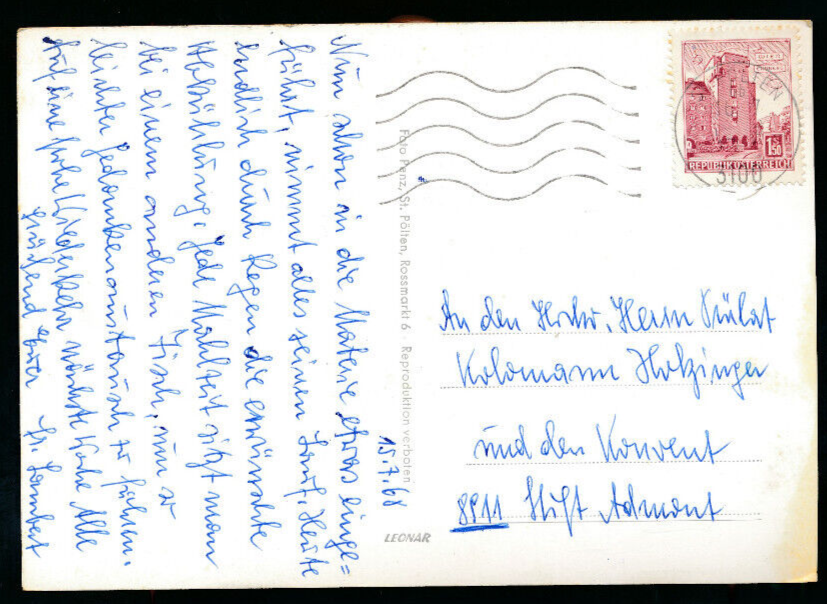 15.7.68
Nun schon in die Materie etwas einge=
führt, nimmt alles seinen Lauf. Heute
endlich durch Regen die erwünschte
Abkühlung. Jede Mahlzeit sitzt man
bei einem anderen Tisch, um so
leichter Gedankenaustausch zu führen.
Auf eine frohe Wiederkehr nächste Woche Alle
grüßend Euer fr. Lambert
Foto Penz, St. Pölten, Rossmarkt 6 · Reproduktion verboten
LEONAR
PÖLTEN
3100
1.50
REPUBLIK ÖSTERREICH
An den Hochw. Herrn Prälat
Kolomann Holzinger
und den Konvent
8911 Stift Admont